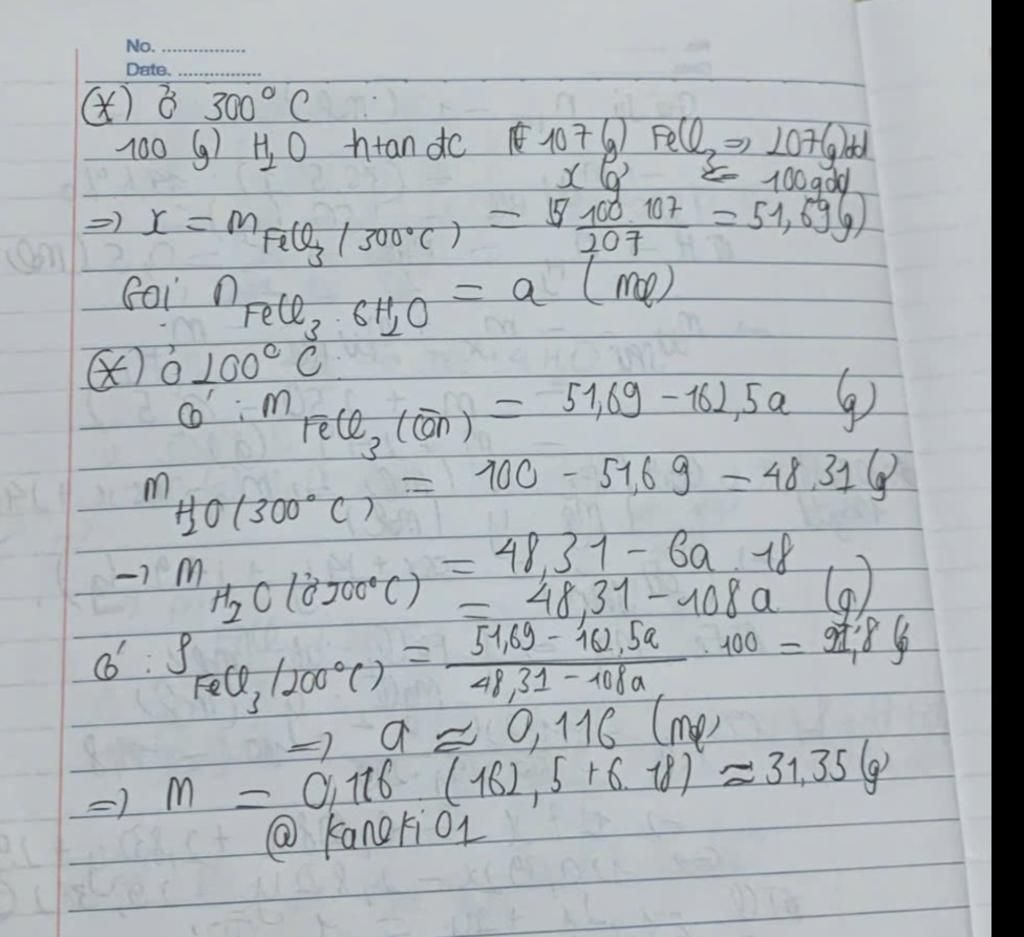 No. ................
Date. ................
(*) ở 300°C :
100 (g) H₂O htan đc 107 (g) FeCl₃ => 207(g)dd
x (g) <= 100gdd
=> x = m FeCl₃ (300°C) = 100.107 / 207 = 51,69(g)
Gọi n FeCl₃.6H₂O = a (mol)
(*) ở 200°C
Có : m FeCl₃ (còn) = 51,69 - 162,5a (g)
m H₂O (300°C) = 100 - 51,69 = 48,31 (g)
-> m H₂O (ở 200°C) = 48,31 - 6a.18
= 48,31 - 108a (g)
Có : S FeCl₃ (200°C) = (51,69 - 162,5a) / (48,31 - 108a) .100 = 91,8 g
=> a ≈ 0,116 (mol)
=> m = 0,116 (162,5 + 6.18) ≈ 31,35 (g)
@ kaneki01